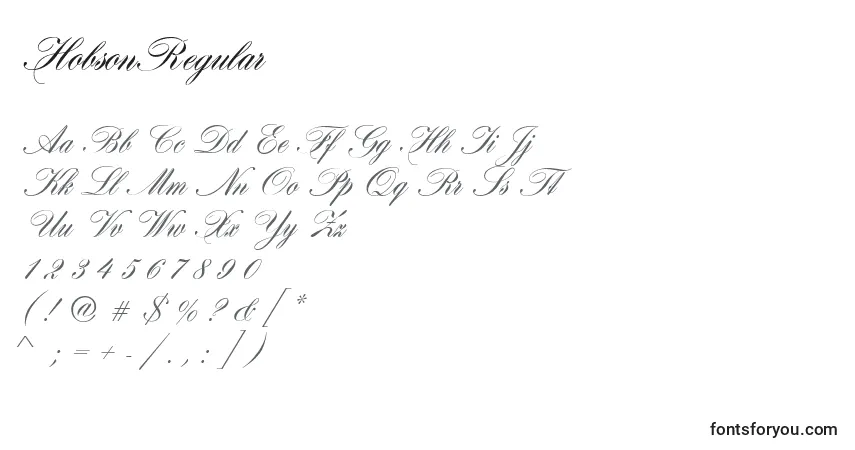 HobsonRegular
Aa Bb Cc Dd Ee Ff Gg Hh Ii Jj
Kk Ll Mm Nn Oo Pp Qq Rr Ss Tt
Uu Vv Ww Xx Yy Zz
1 2 3 4 5 6 7 8 9 0
( ! @ # $ % ? & [ *
^ ; = + - / . , : ] )
fontsforyou.com